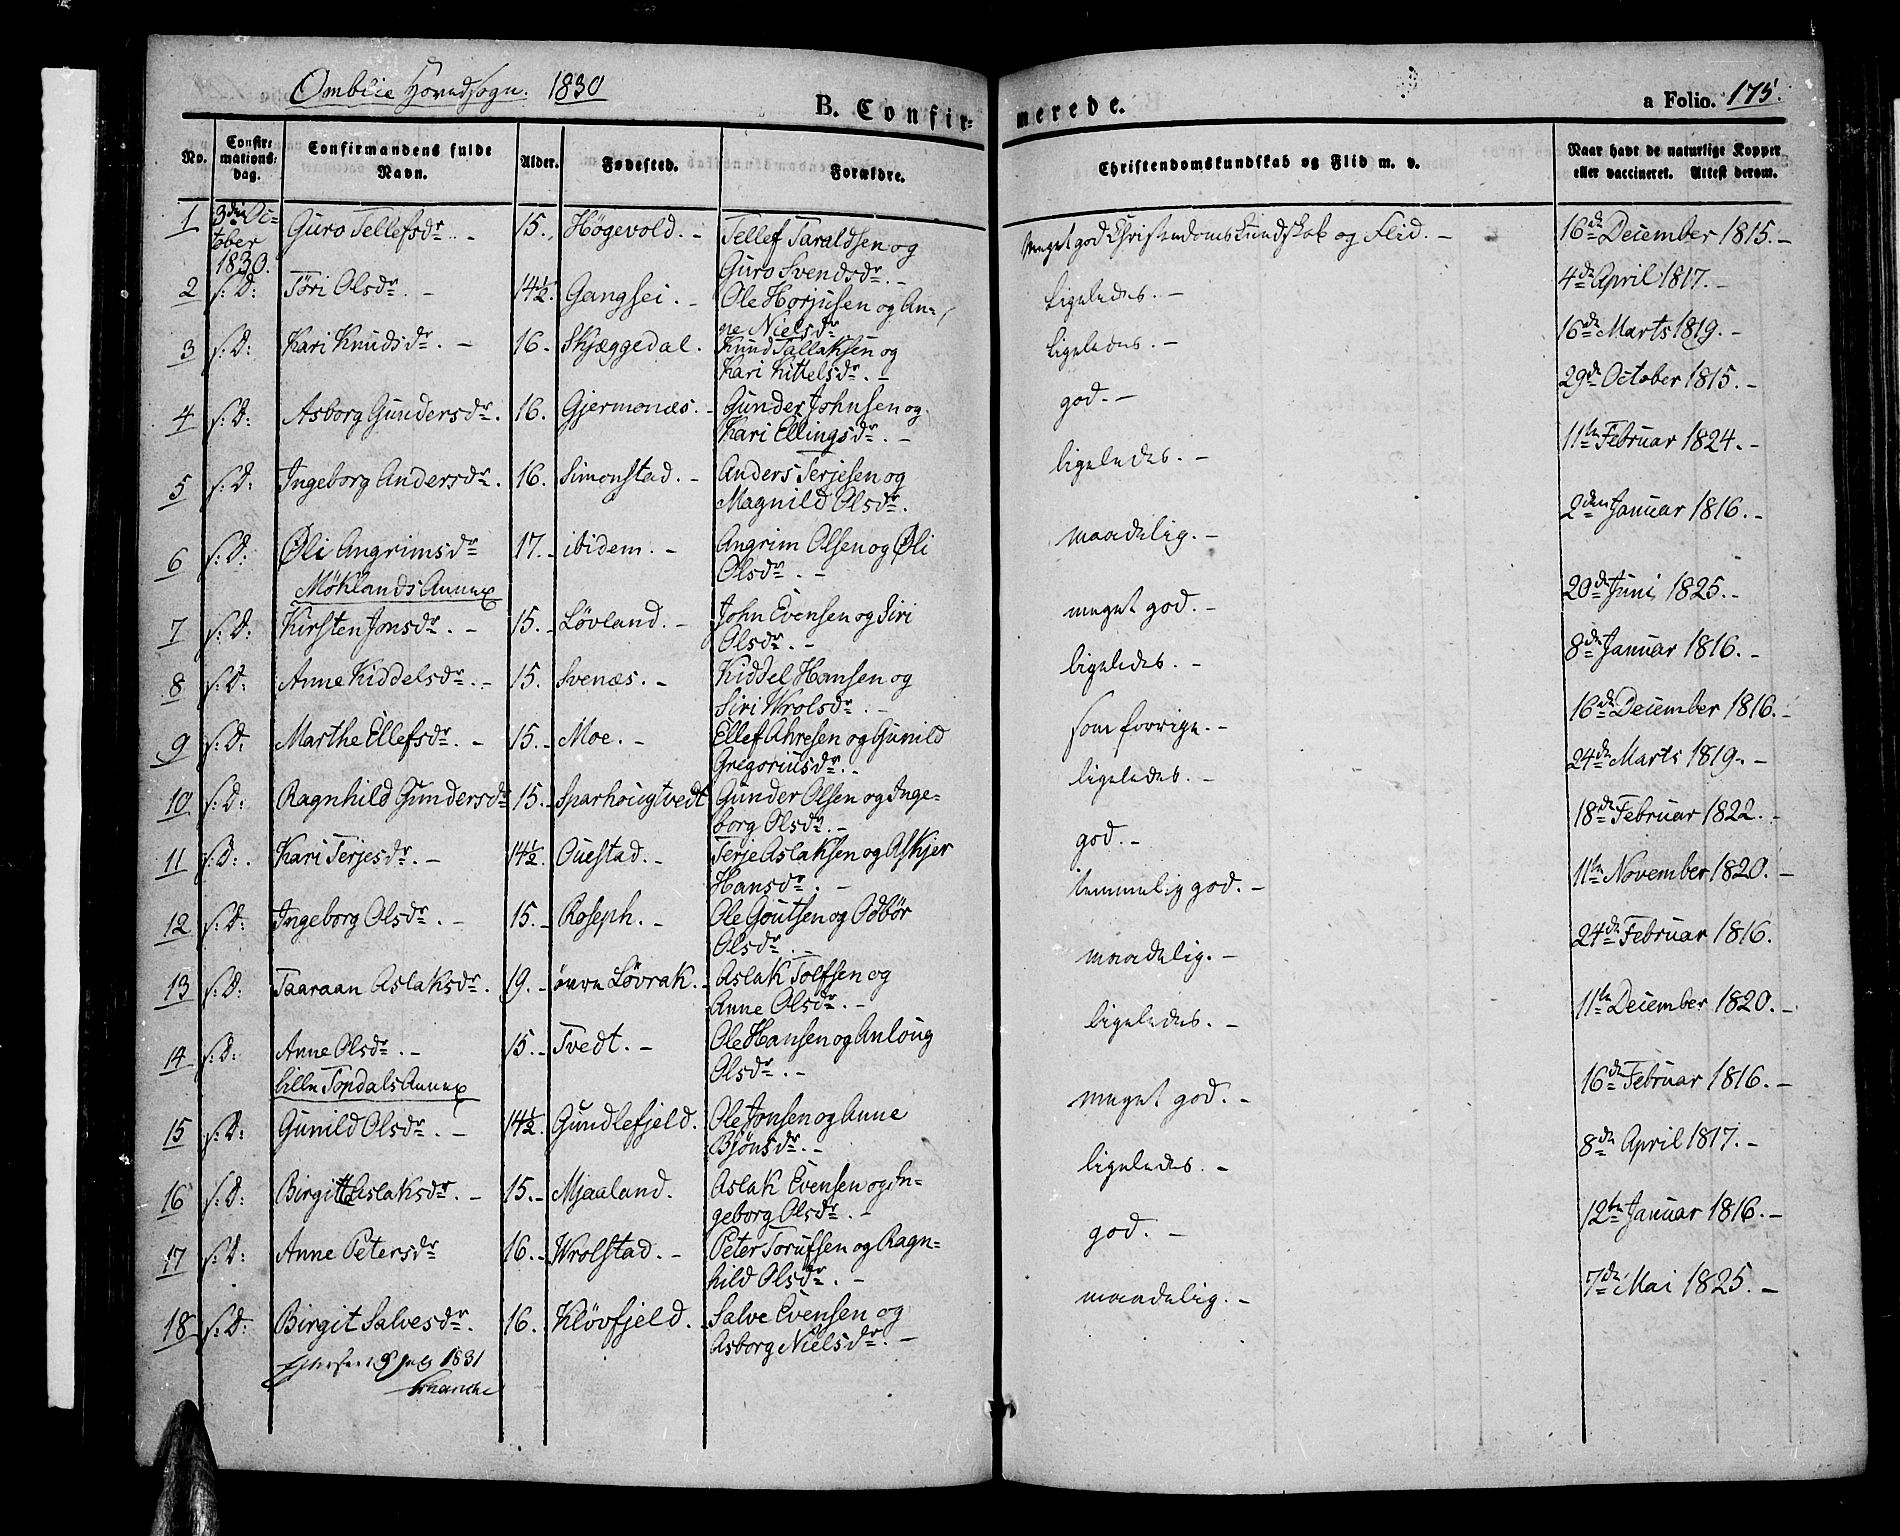 Omblie Hovedsogn. 1830
B. Confir-
merede.
a Folio. 175.
No.
Confir-
mations-
dag.
Confirmandens fulde
Navn.
Alder.
Fødested.
Forældre.
Christendomskundskab og Flid m. v.
Naar havt de naturlige Kopper
eller vaccineret. Attest derom.
1 3die Oc-
tober
1830. Guro Tellefsdr. - 15. Högevold. - Tellef Taraldsen og
Guro Svendsdr. - Meget god Christendoms Kundskab og Flid. - 16de December 1815. -
2 s: D: Töri Olsdr. - 14½. Gangsei. - Ole Horjusen og An-
ne Nielsdr. Ligeledes. - 4de April 1817. -
3 s: D: Kari Knudsdr. - 16. Skjæggedal. Knud Tallaksen og
Kari Kittelsdr. - Ligeledes. - 16de Marts 1819. -
4 s: D: Asborg Gundersdr. 16. Gjermonæs. - Gunder Johnsen og
Kari Ellingsdr. - god. - 29de October 1815. -
5 s: D: Ingeborg Andersdr. 16. Simonstad. - Anders Terjesen og
Magnild Olsdr. ligeledes. - 11te Februar 1824. -
6 s: D: Øli Angrimsdr 17. - ibidem. - Angrim Olsen og Øli
Olsdr. - maadelig. - 2den Januar 1816. -
Möklands Annex
7 s: D: Kirsten Jonsdr. - 15. - Lövland. - John Evensen og Siri
Olsdr. - meget god. - 20de Juni 1825. -
8 s: D: Anne Kiddelsdr. - 15. Svenæs. - Kiddel Hansen og
Siri Wrolsdr. - ligeledes. - 8de Januar 1816. -
9 s: D: Marthe Ellefsdr. - 15. - Moe. - Ellef Ahresen og Gunild
Gregoriusdr. - som forrige. - 16de December 1816. -
10 s: D: Ragnhild Gundersdr 15. - Sparhougtvedt Gunder Olsen og Inge-
borg Olsdr. - ligeledes. - 24de Marts 1819. -
11 s: D: Kari Terjesdr. - 14½. Ouestad. - Terje Aslaksen og Askjer
Hansdr. - god. - 18de Februar 1822. -
12 s: D: Ingeborg Olsdr. - 15. - Roseph. - Ole Goutsen og Odbör
Olsdr. - temmelig god. - 11te November 1820. -
13 s: D: Taaraan Aslaksdr. 19. - övre Lövrak. - Aslak Tolfsen og
Anne Olsdr. - maadelig. - 24de Februar 1816.
14 s: D: Anne Olsdr. - 15. - Tvedt. - Ole Hansen og Anloug
Olsdr. - ligeledes. - 11te December 1820. -
Lille Topdals Annex
15 s: D: Gunild Olsdr. - 14½. Gundlefjeld. Ole Jonsen og Anne
Bjönsdr. - meget god. - 16de Februar 1816. -
16 s: D: Birgitte Aslaksdr. - 15. - Mjaaland. Aslak Evensen og In-
geborg Olsdr. - ligeledes. - 8de April 1817. -
17 s: D: Anne Petersdr 16. - Wrolstad. - Peter Torufsen og Ragn-
hild Olsdr. - god. - 12te Januar 1816. -
18 s: D: Birgit Salvesdr. 16. Klövfjeld. - Salve Evensen og
Asborg Nielsdr. - maadelig. - 7de Mai 1825. -
Efterseet 9 July 1831